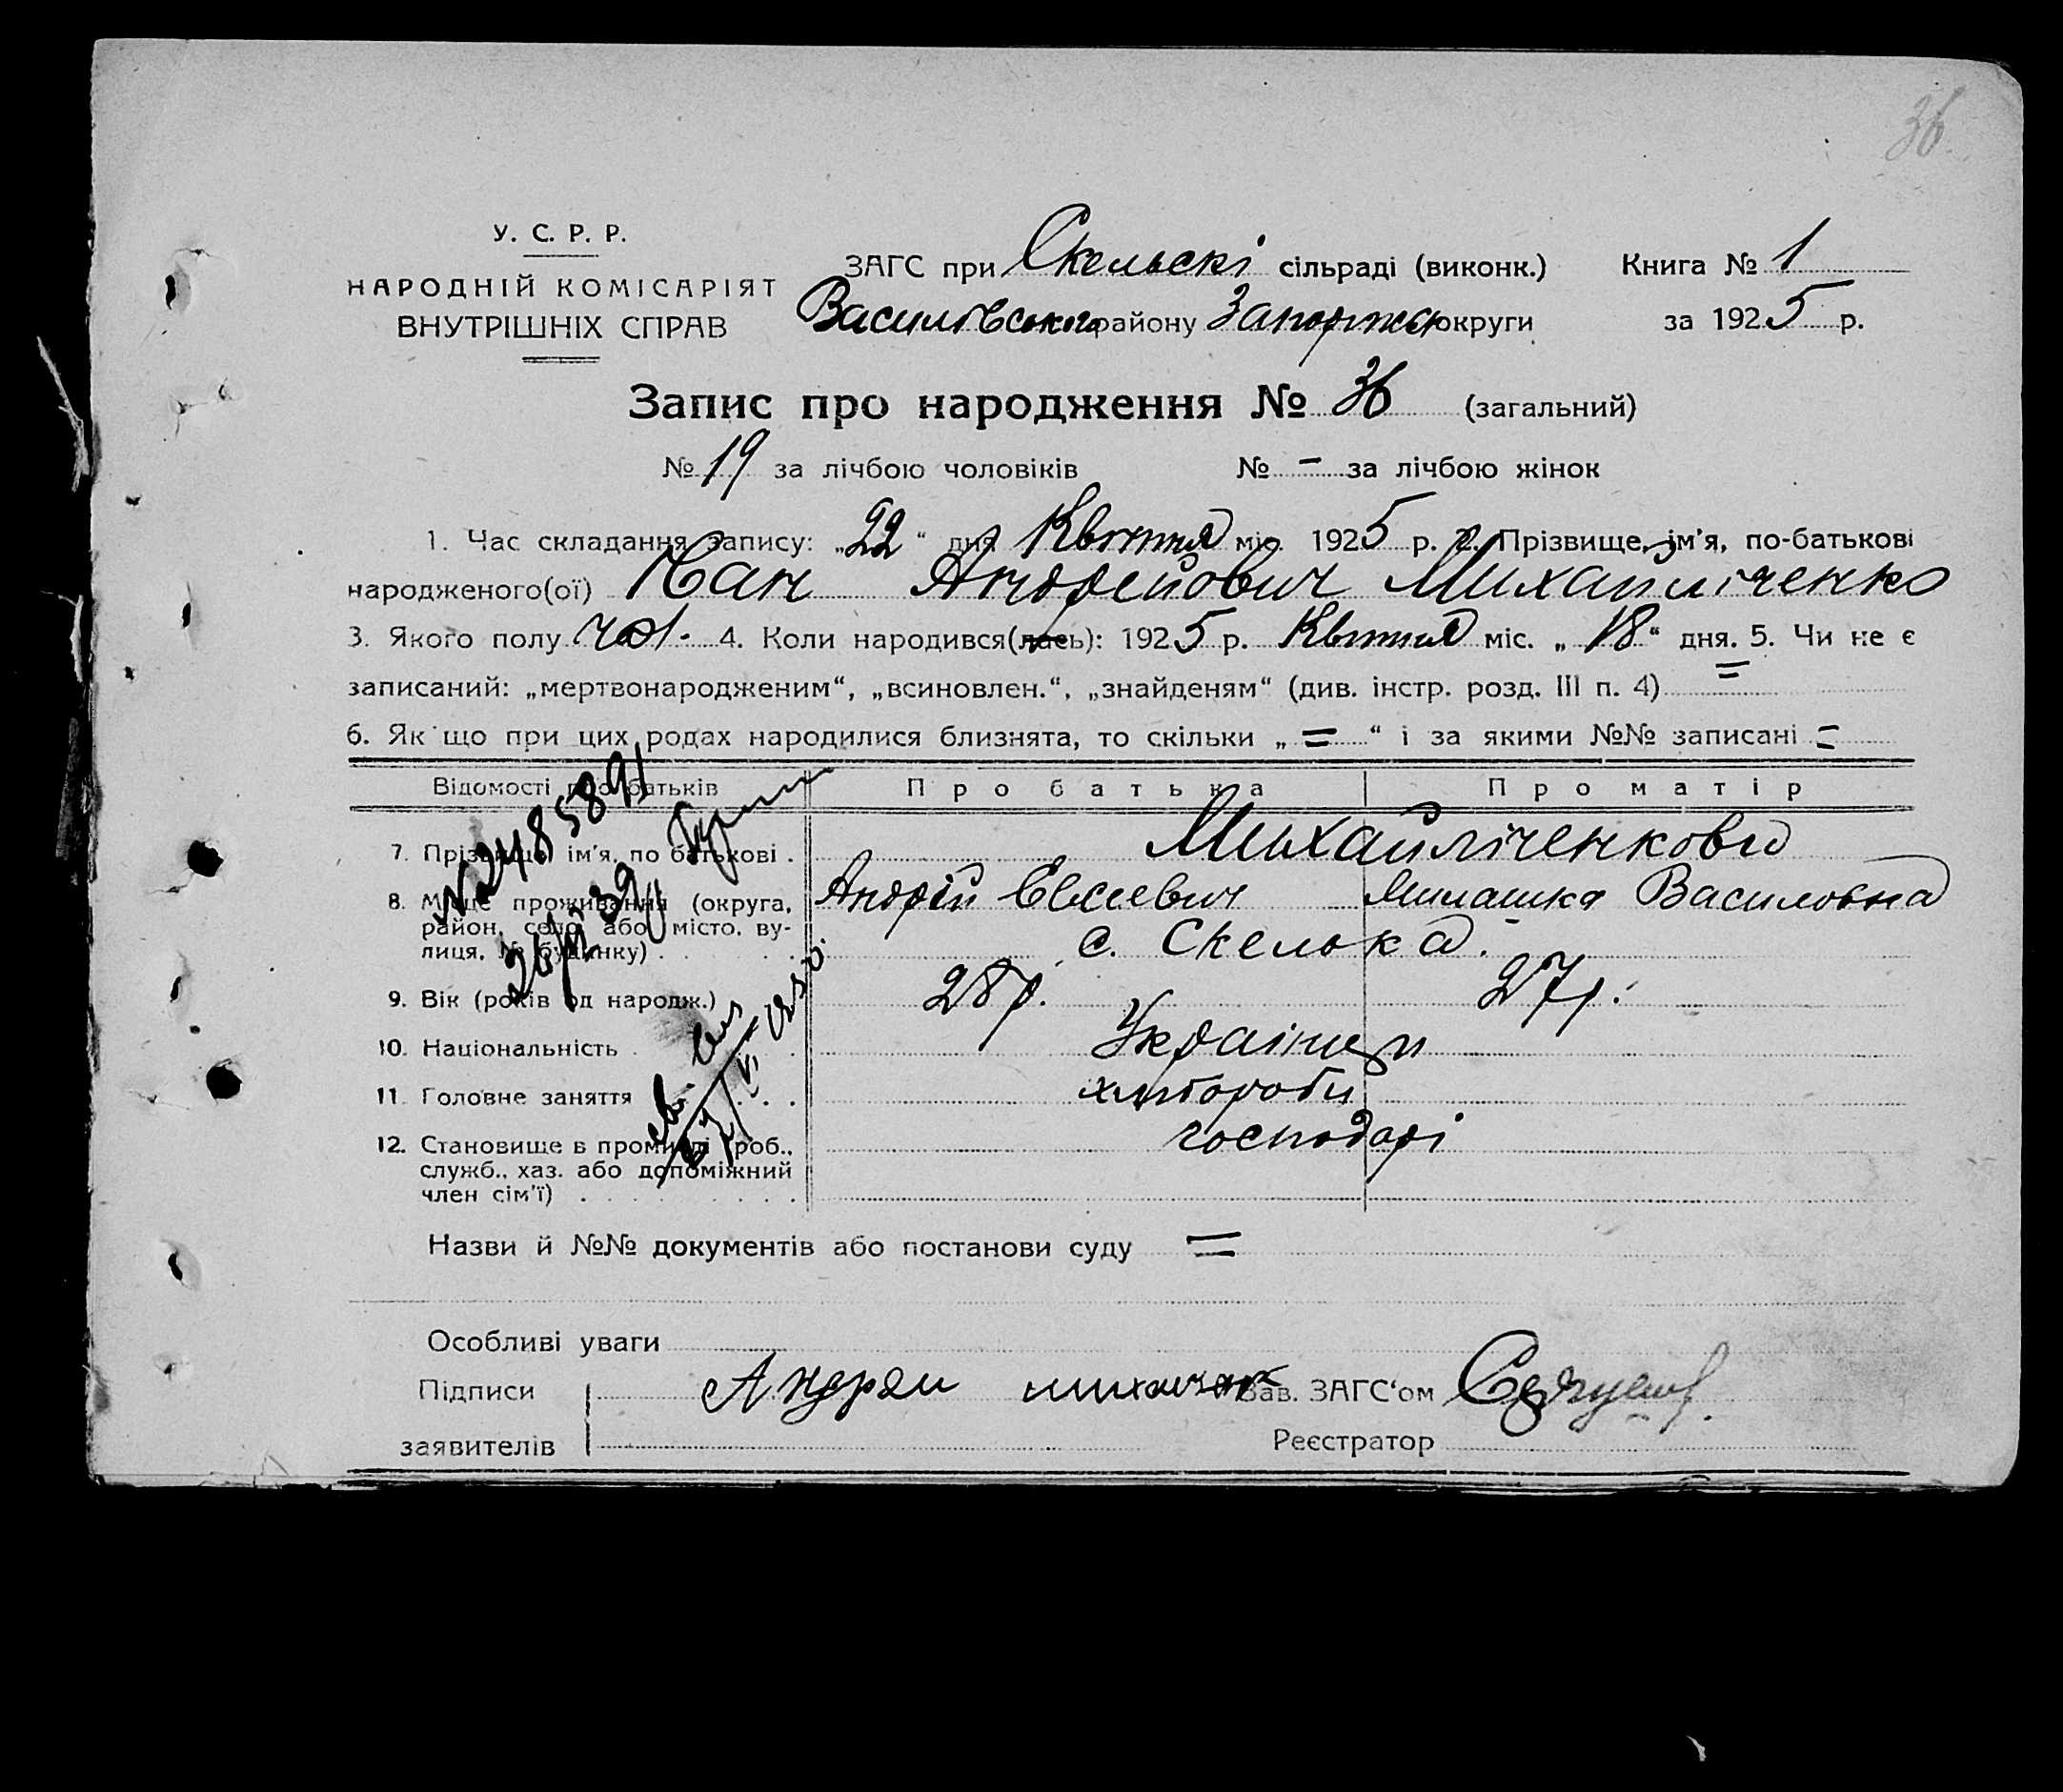 36
У. С. Р. Р.
НАРОДНІЙ КОМІСАРІЯТ
ВНУТРІШНІХ СПРАВ
ЗАГС при Скельскі сільраді (виконк.) Книга № 1
Василівського району Запоріжськ округи за 1925 р.
Запис про народження № 36 (загальний)
№ 19 за лічбою чоловіків № - за лічбою жінок
1. Час складання запису: „22“ дня Квітня міс. 1925 р. 2. Прізвище, ім’я, по-батькові
народженого(ої) Андрейович Михайліченко
3. Якого полу чол. 4. Коли народився(лась): 1925 р. Квітня міс. „18“ дня. 5. Чи не є
записаний: „мертвонародженим“, „всиновлен.“, „знайденям“ (див. інстр. розд. III п. 4) =
6. Якщо при цих родах народилися близнята, то скільки „=“ і за якими №№ записані =
Відомості про батьків Про батька Про матір
7. Прізвище, ім’я, по батькові . Михайліченкови
Андрій Евсиевич Милашка Василовна
8. Місце проживання (округа,
район, село або місто, ву-
лиця, № будинку) . с. Скелька.
9. Вік (років од народж.) 28 р. 27 р.
10. Національність . Українци
11. Головне заняття хлібороби
12. Становище в промислі (роб.,
служб., хаз. або допоміжний
член сім’ї) господарі
№ 2485891
Назви й №№ документів або постанови суду =
Особливі уваги
Підписи Андрей Зав. ЗАГС‘ом
заявителів Реєстратор